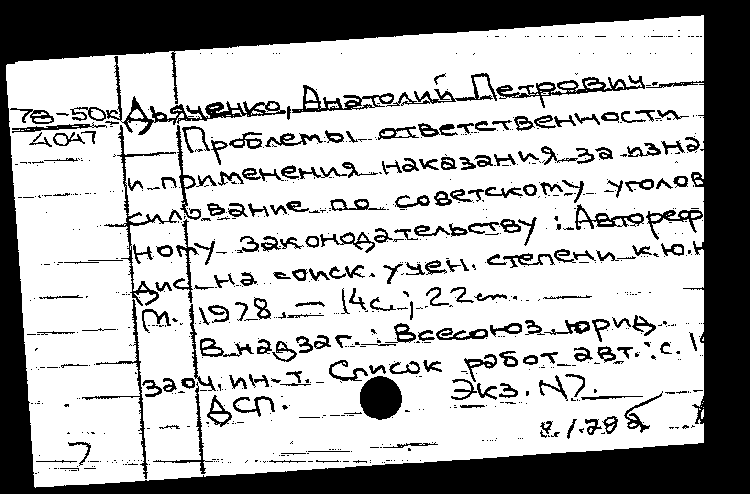 78-50к Дьяченко, Анатолий Петрович.
4047
Проблемы ответственности
и применения наказания за изна
силование по советскому уголов
ному законодательству : Автореф
дис. на соиск. учен. степени к.ю.н
М. 1978. — 14с.; 22см.
В надзаг.: Всесоюз. юрид.
заоч. ин-т. Список работ авт.: с. 14
ДСП. Экз. N7.